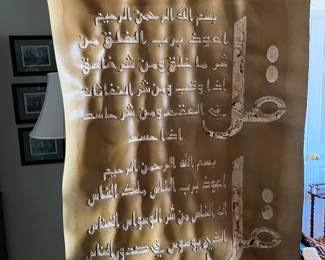 بسم الله الرحمن الرحيم
قل اعوذ برب الفلق من
شر ما خلق ومن شر غاسق
اذا وقب ومن شر النفاثات
في العقد ومن شر حاسد
اذا حسد
بسم الله الرحمن الرحيم
قل اعوذ برب الناس ملك الناس
اله الناس من شر الوسواس الخناس
الذي يوسوس في صدور الناس